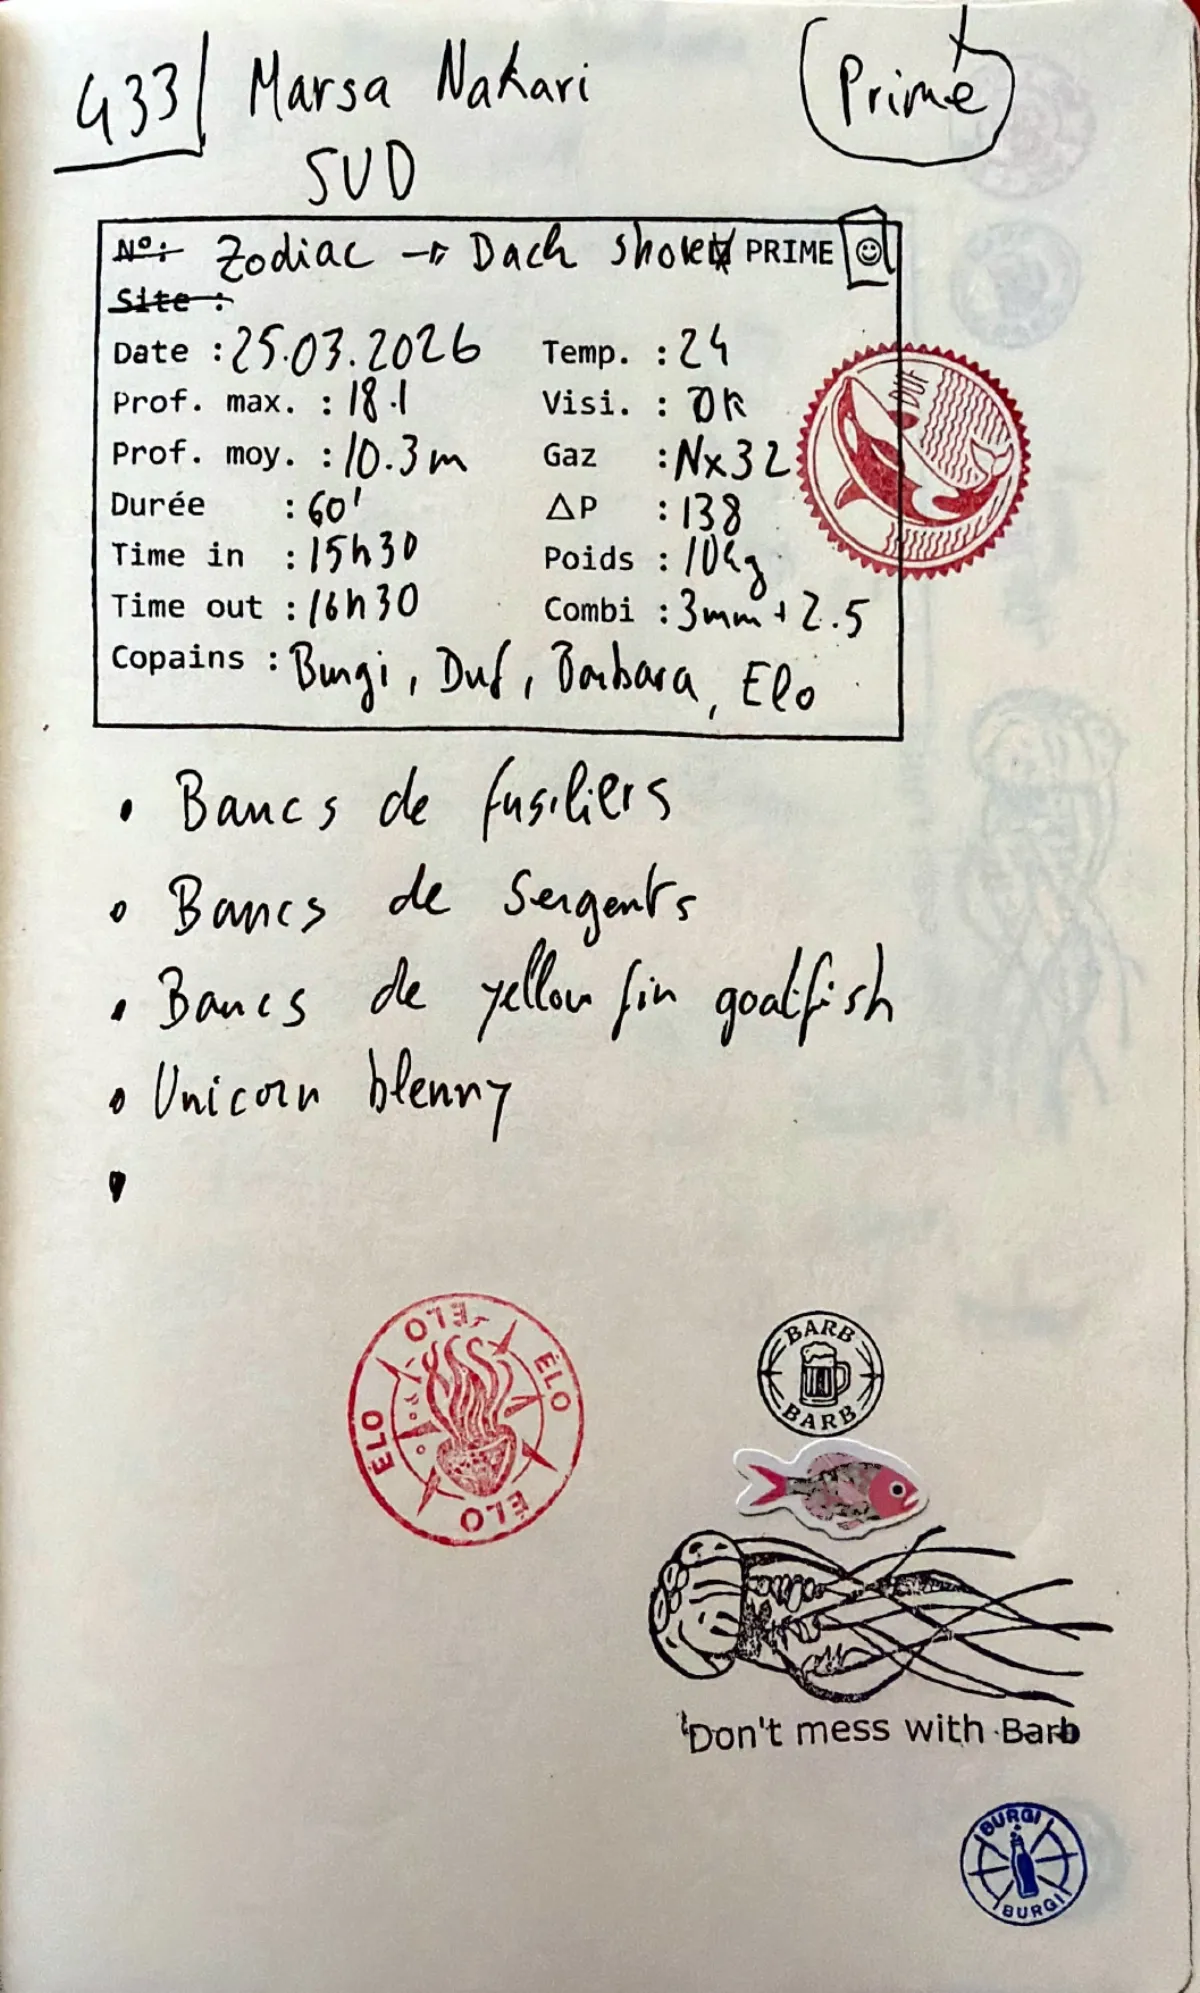 433 Marsa Nakari Primé
SUD
N°: Zodiac → Dach shore PRIME
Site :
Date : 25.03.2026 Temp. : 24
Prof. max. : 18.1 Visi. : OK
Prof. moy. : 10.3m Gaz : Nx32
Durée : 60' ΔP : 138
Time in : 15h30 Poids : 10kg
Time out : 16h30 Combi : 3mm + 2.5
Copains : Burgi, Duf, Barbara, Elo
DUF
• Bancs de fusiliers
• Bancs de Sergents
• Bancs de yellow fin goatfish
• Unicorn blenny
•
ÉLO ÉLO ÉLO ÉLO
BARB
BARB
Don't mess with Barb
BURGI
BURGI